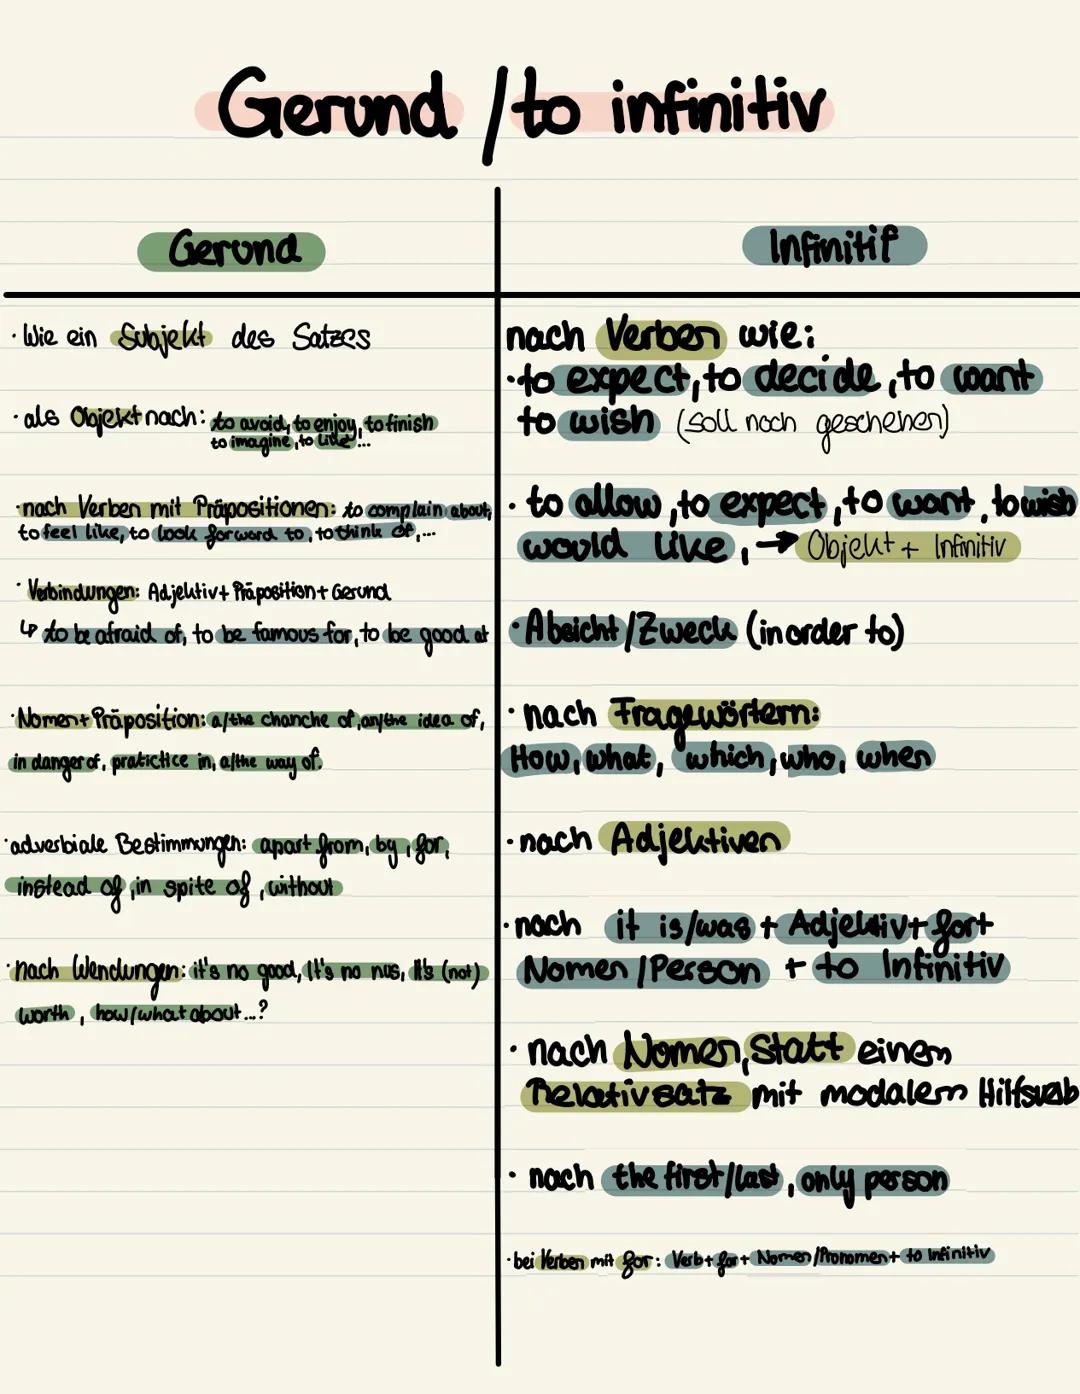 Gerund / to infinitiv
Gerund
· Wie ein Subjekt des Satzes
· als Objekt nach: to avoid, to enjoy, to finish
to imagine, to like ...
· nach Verben mit Präpositionen: to complain about,
to feel like, to look forward to, to think of, ...
· Verbindungen: Adjektiv + Präposition + Gerund
↳ to be afraid of, to be famous for, to be good at
· Nomen + Präposition: a/the chanche of, an/the idea of,
in danger of, pratictice in, a/the way of.
· adverbiale Bestimmungen: apart from, by, for,
instead of, in spite of, without
· nach Wendungen: it's no good, It's no nus, It's (not)
worth, how/what about ...?
Infinitif
nach Verben wie:
· to expect, to decide, to want
to wish (soll noch geschehen)
· to allow, to expect, to want, to wish
would like, → Objekt + Infinitiv
· Absicht/Zweck (in order to)
· nach Fragewörtern:
How, what, which, who, when
· nach Adjektiven
· nach it is/was + Adjektiv + for +
Nomen/Person + to Infinitiv
· nach Nomen, statt einem
Relativsatz mit modalem Hilfsverb
· nach the first/last, only person
· bei Verben mit for: Verb + for + Nomen/Pronomen + to Infinitiv